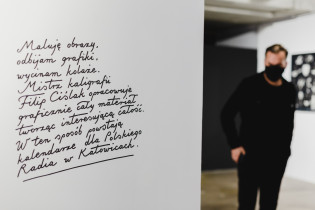 Maluję obrazy,
odbijam grafiki,
wycinam kolaże.
Mistrz kaligrafii
Filip Ciślak opracowuje
graficznie cały materiał
tworząc interesującą całość.
W ten sposób powstają
kalendarze dla Polskiego
Radia w Katowicach.